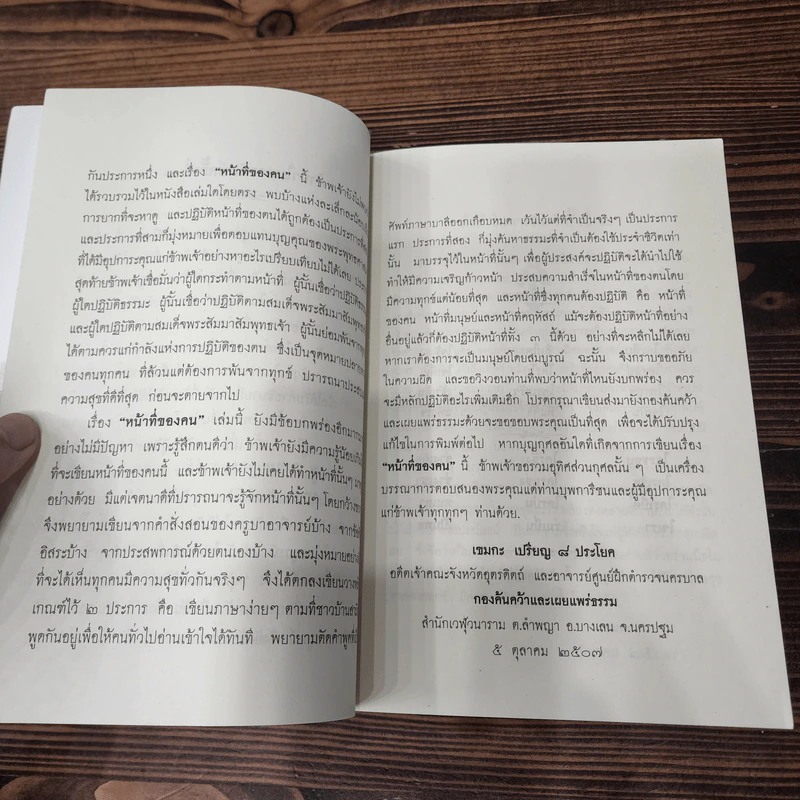 กันประการหนึ่ง และเรื่อง “หน้าที่ของคน” นี้ ข้าพเจ้ายังไม่
ได้รวบรวมไว้ในหนังสือเล่มใดโดยตรง พบบ้างแห่งละเล็กละน้อย
การยากที่จะหาดู และปฏิบัติหน้าที่ของตนได้ถูกต้องเป็นประการที่
และประการที่สามก็มุ่งหมายเพื่อตอบแทนบุญคุณของพระพุทธ
ที่ได้มีอุปการะคุณแก่ข้าพเจ้าอย่างหาอะไรเปรียบเทียบไม่ได้เลย
สุดท้ายข้าพเจ้าเชื่อมั่นว่าผู้ใดกระทำตามหน้าที่ ผู้นั้นเชื่อว่าปฏิบัติ
ผู้ใดปฏิบัติธรรมะ ผู้นั้นเชื่อว่าปฏิบัติตามสมเด็จพระสัมมาสัมพุทธ
และผู้ใดปฏิบัติตามสมเด็จพระสัมมาสัมพุทธเจ้า ผู้นั้นย่อมพ้นจาก
ได้ตามควรแก่กำลังแห่งการปฏิบัติของตน ซึ่งเป็นจุดหมายปลาย
ของคนทุกคน ที่ล้วนแต่ต้องการพ้นจากทุกข์ ปรารถนาประสบ
ความสุขที่ดีที่สุด ก่อนจะตายจากไป
เรื่อง “หน้าที่ของคน” เล่มนี้ ยังมีข้อบกพร่องอีกมาก
อย่างไม่มีปัญหา เพราะรู้สึกตนดีว่า ข้าพเจ้ายังมีความรู้น้อย
ที่จะเขียนหน้าที่ของคนนี้ และข้าพเจ้ายังไม่เคยได้ทำหน้าที่นั้นๆ
อย่างด้วย มีแต่เจตนาดีที่ปรารถนาจะรู้จักหน้าที่นั้นๆ โดยกว้าง
จึงพยายามเขียนจากคำสั่งสอนของครูบาอาจารย์บ้าง จาก
อิสระบ้าง จากประสพการณ์ด้วยตนเองบ้าง และมุ่งหมายอย่าง
ที่จะได้เห็นทุกคนมีความสุขทั่วกันจริงๆ จึงได้ตกลงเขียนวาง
เกณฑ์ไว้ ๒ ประการ คือ เขียนภาษาง่ายๆ ตามที่ชาวบ้าน
พูดกันอยู่เพื่อให้คนทั่วไปอ่านเข้าใจได้ทันที พยายามตัดคำพูด
ศัพท์ภาษาบาลีออกเกือบหมด เว้นไว้แต่ที่จำเป็นจริงๆ เป็นประการ
แรก ประการที่สอง ก็มุ่งค้นหาธรรมะที่จำเป็นต้องใช้ประจำชีวิตเท่า
นั้น มาบรรจุไว้ในหน้าที่นั้นๆ เพื่อผู้ประสงค์จะปฏิบัติจะได้นำไปใช้
ทำให้มีความเจริญก้าวหน้า ประสบความสำเร็จในหน้าที่ของตนโดย
มีความทุกข์แต่น้อยที่สุด และหน้าที่ซึ่งทุกคนต้องปฏิบัติ คือ หน้าที่
ของคน หน้าที่มนุษย์และหน้าที่คฤหัสถ์ แม้จะต้องปฏิบัติหน้าที่อย่าง
อื่นอยู่แล้วก็ต้องปฏิบัติหน้าที่ทั้ง ๓ นี้ด้วย อย่างที่จะหลีกไม่ได้เลย
หากเราต้องการจะเป็นมนุษย์โดยสมบูรณ์ ฉะนั้น จึงกราบขออภัย
ในความผิด และขอวิงวอนท่านที่พบว่าหน้าที่ไหนยังบกพร่อง ควร
จะมีหลักปฏิบัติอะไรเพิ่มเติมอีก โปรดกรุณาเขียนส่งมายังกองค้นคว้า
และเผยแพร่ธรรมะด้วยจะขอขอบพระคุณเป็นที่สุด เพื่อจะได้ปรับปรุง
แก้ไขในการพิมพ์ต่อไป หากบุญกุศลอันใดที่เกิดจากการเขียนเรื่อง
“หน้าที่ของคน” นี้ ข้าพเจ้าขอรวมอุทิศส่วนกุศลนั้น ๆ เป็นเครื่อง
บรรณาการตอบสนองพระคุณแต่ท่านบุพการีชนและผู้มีอุปการะคุณ
แก่ข้าพเจ้าทุกทุกๆ ท่านด้วย.
เขมกะ เปรียญ ๘ ประโยค
อดีตเจ้าคณะจังหวัดอุตรดิตถ์ และอาจารย์ศูนย์ฝึกตำรวจนครบาล
กองค้นคว้าและเผยแพร่ธรรม
สำนักเวฬุวนาราม ต.ลำพญา อ.บางเลน จ.นครปฐม
๕ ตุลาคม ๒๕๐๗